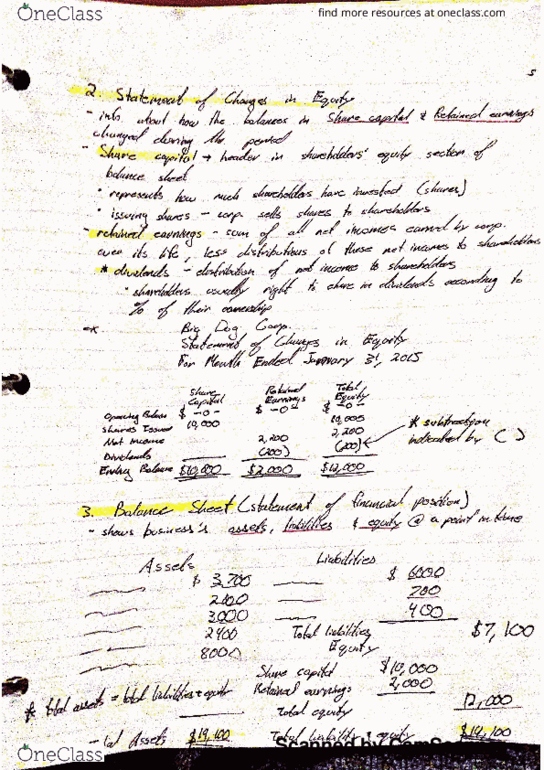 OneClass
find more resources at oneclass.com
5
2. Statement of Changes in Equity
- info about how the balances in Share capital & Retained earnings
changed during the period
- Share capital → header in shareholders' equity section of
balance sheet
• represents how much shareholders have invested (shares)
• issuing shares - corp. sells shares to shareholders
- retained earnings - sum of all net incomes earned by corp.
over its life, less distributions of those net incomes to shareholders
* dividends - distribution of net income to shareholders
• shareholders usually right to share in dividends according to
% of their ownership
ex. Big Dog Corp.
Statement of Changes in Equity
For Month Ended January 31, 2015
Share Capital Retained Earnings Total Equity
Opening Balance $ -0- $ -0- $ -0-
Shares Issued 10,000 10,000
Net Income 2,200 2,200
Dividends (200) (200)
Ending Balance $10,000 $2,000 $12,000
* subtraction
indicated by ( )
3. Balance Sheet (statement of financial position)
- shows business's assets, liabilities & equity @ a point in time
Assets Liabilities
$ 3,700 $ 6000
2400 700
3,000 400
2400 Total liabilities $7,100
8000 Equity
Share capital $10,000
* total assets = total liabilities + equity Retained earnings 2,000
Total equity 12,000
Total Assets $19,100 Total liabilities equity $19,100
Scanned by
OneClass